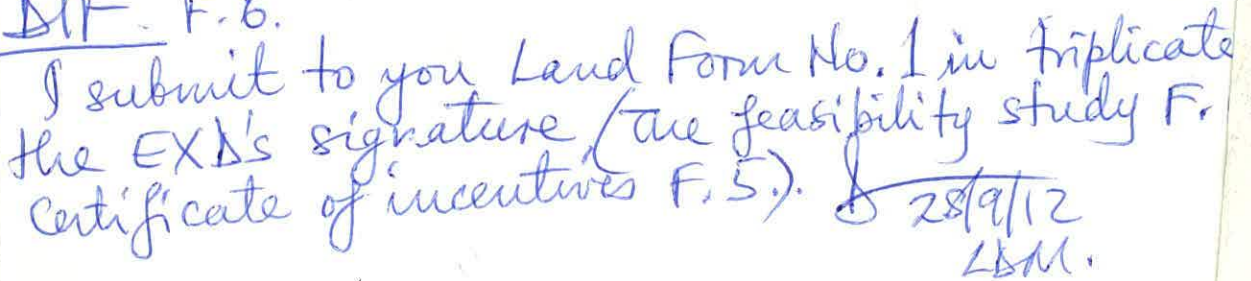 DIF - F.6.
I submit to you Land Form No. 1 in triplicate
the EXD's signature, (the feasibility study F.
Certificate of incentives F.5.).
28/9/12
LDM.